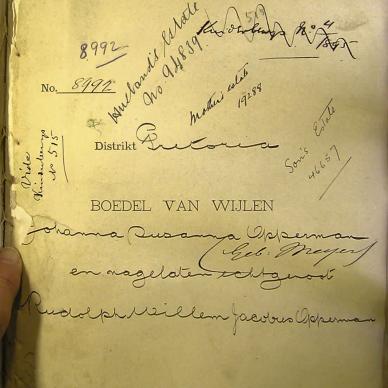 8992
Husband's Estate
No 94839
Kinderbewys No 4/1895
No. 8992
Mother's estate
19288
Son's Estate
46657
Vide
Kinderbewys
No 515
Distrikt Pretoria
BOEDEL VAN WIJLEN
Johanna Susanna Opperman
(Geb. Meyer)
en nagelaten echtgenoot
Rudolph Willem Jacobus Opperman